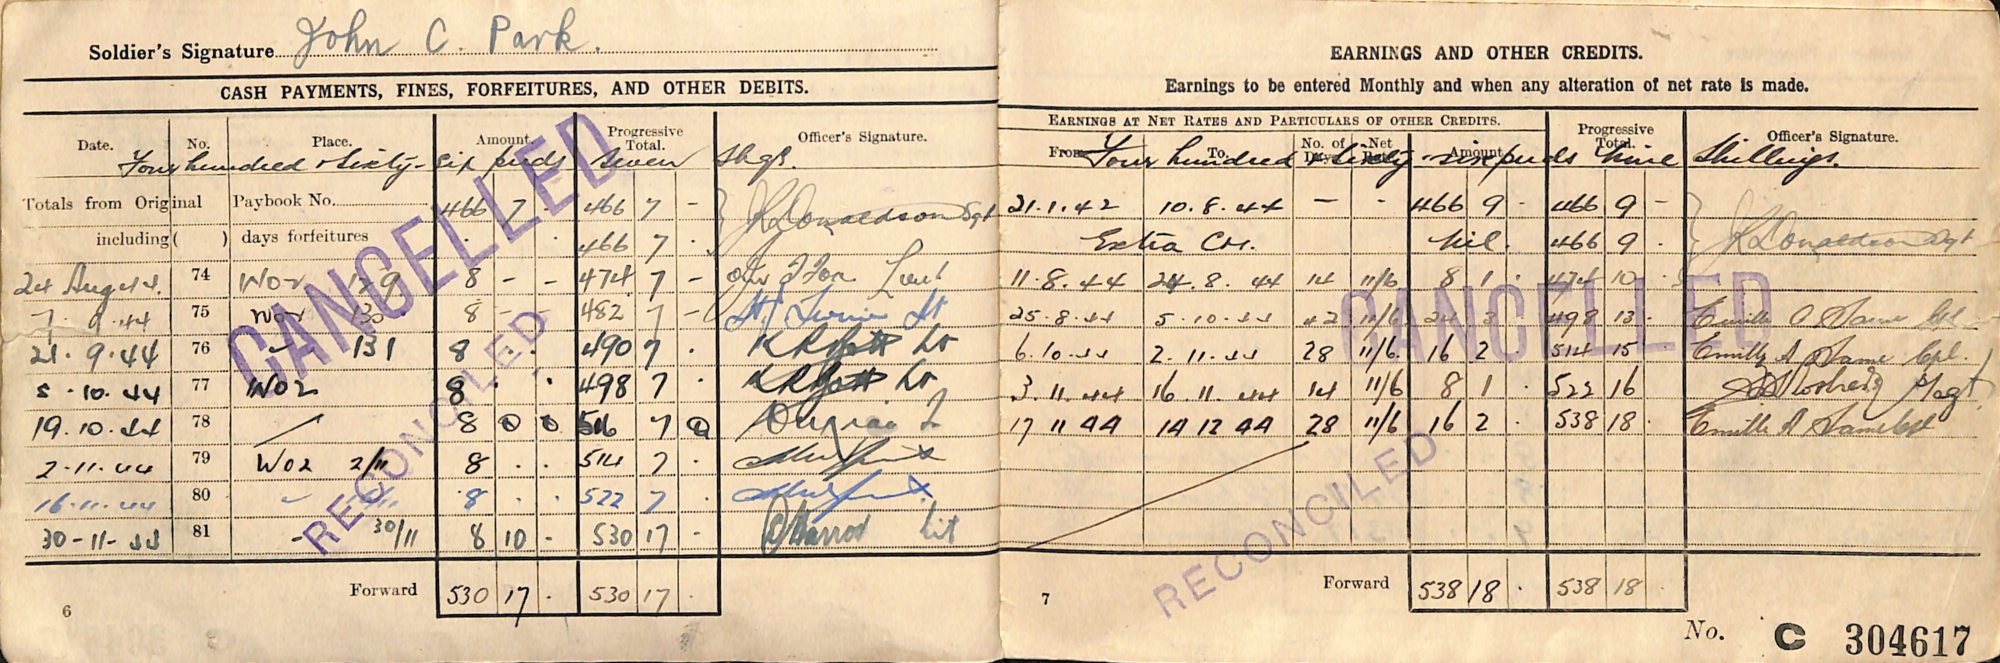 Soldier's Signature John C. Park.
CASH PAYMENTS, FINES, FORFEITURES, AND OTHER DEBITS.
Date. No. Place. Amount. Progressive Total. Officer's Signature.
Four hundred & Sixty-six pnds seven Shgs.
Totals from Original Paybook No. 466 7 466 7 - Donaldson Sgt
including ( ) days forfeitures 466 7 .
24 Aug 44 74 WO2 129 8 - - 474 7 - Lieut
7 . 9 . 44 75 WO2 130 8 - - 482 7 - Lt
21 . 9 . 44 76 131 8 . . 490 7 . Lt
5 . 10 . 44 77 WO2 8 . . 498 7 . Lt
19 . 10 . 44 78 8 0 0 7 0
2 . 11 . 44 79 WO2 2/11 8 . . 514 7 .
16 . 11 . 44 80 8 . . 522 7 .
30 - 11 - 44 81 30/11 8 10 - 530 17 . Lit
Forward 530 17 . 530 17 .
6
CANCELLED
RECONCILED
EARNINGS AND OTHER CREDITS.
Earnings to be entered Monthly and when any alteration of net rate is made.
EARNINGS AT NET RATES AND PARTICULARS OF OTHER CREDITS. Progressive Total. Officer's Signature.
From To. No. of Days Net Rate Amount
Four hundred & sixty-six pnds nine Shillings.
21.1.42 10.8.44 - - 466 9 - 466 9 -
Extra Cr. Nil. 466 9 . Donaldson Sgt
11.8.44 24.8.44 14 11/6 8 1 474 10
25.8.44 5.10.44 42 11/6 24 3 498 13
6.10.44 2.11.44 28 11/6 16 2 514 15 Cpl.
3.11.44 16.11.44 14 11/6 8 1 522 16
17 11 44 14 12 44 28 11/6 16 2 538 18
Forward 538 18 . 538 18
7
CANCELLED
RECONCILED
No. C 304617